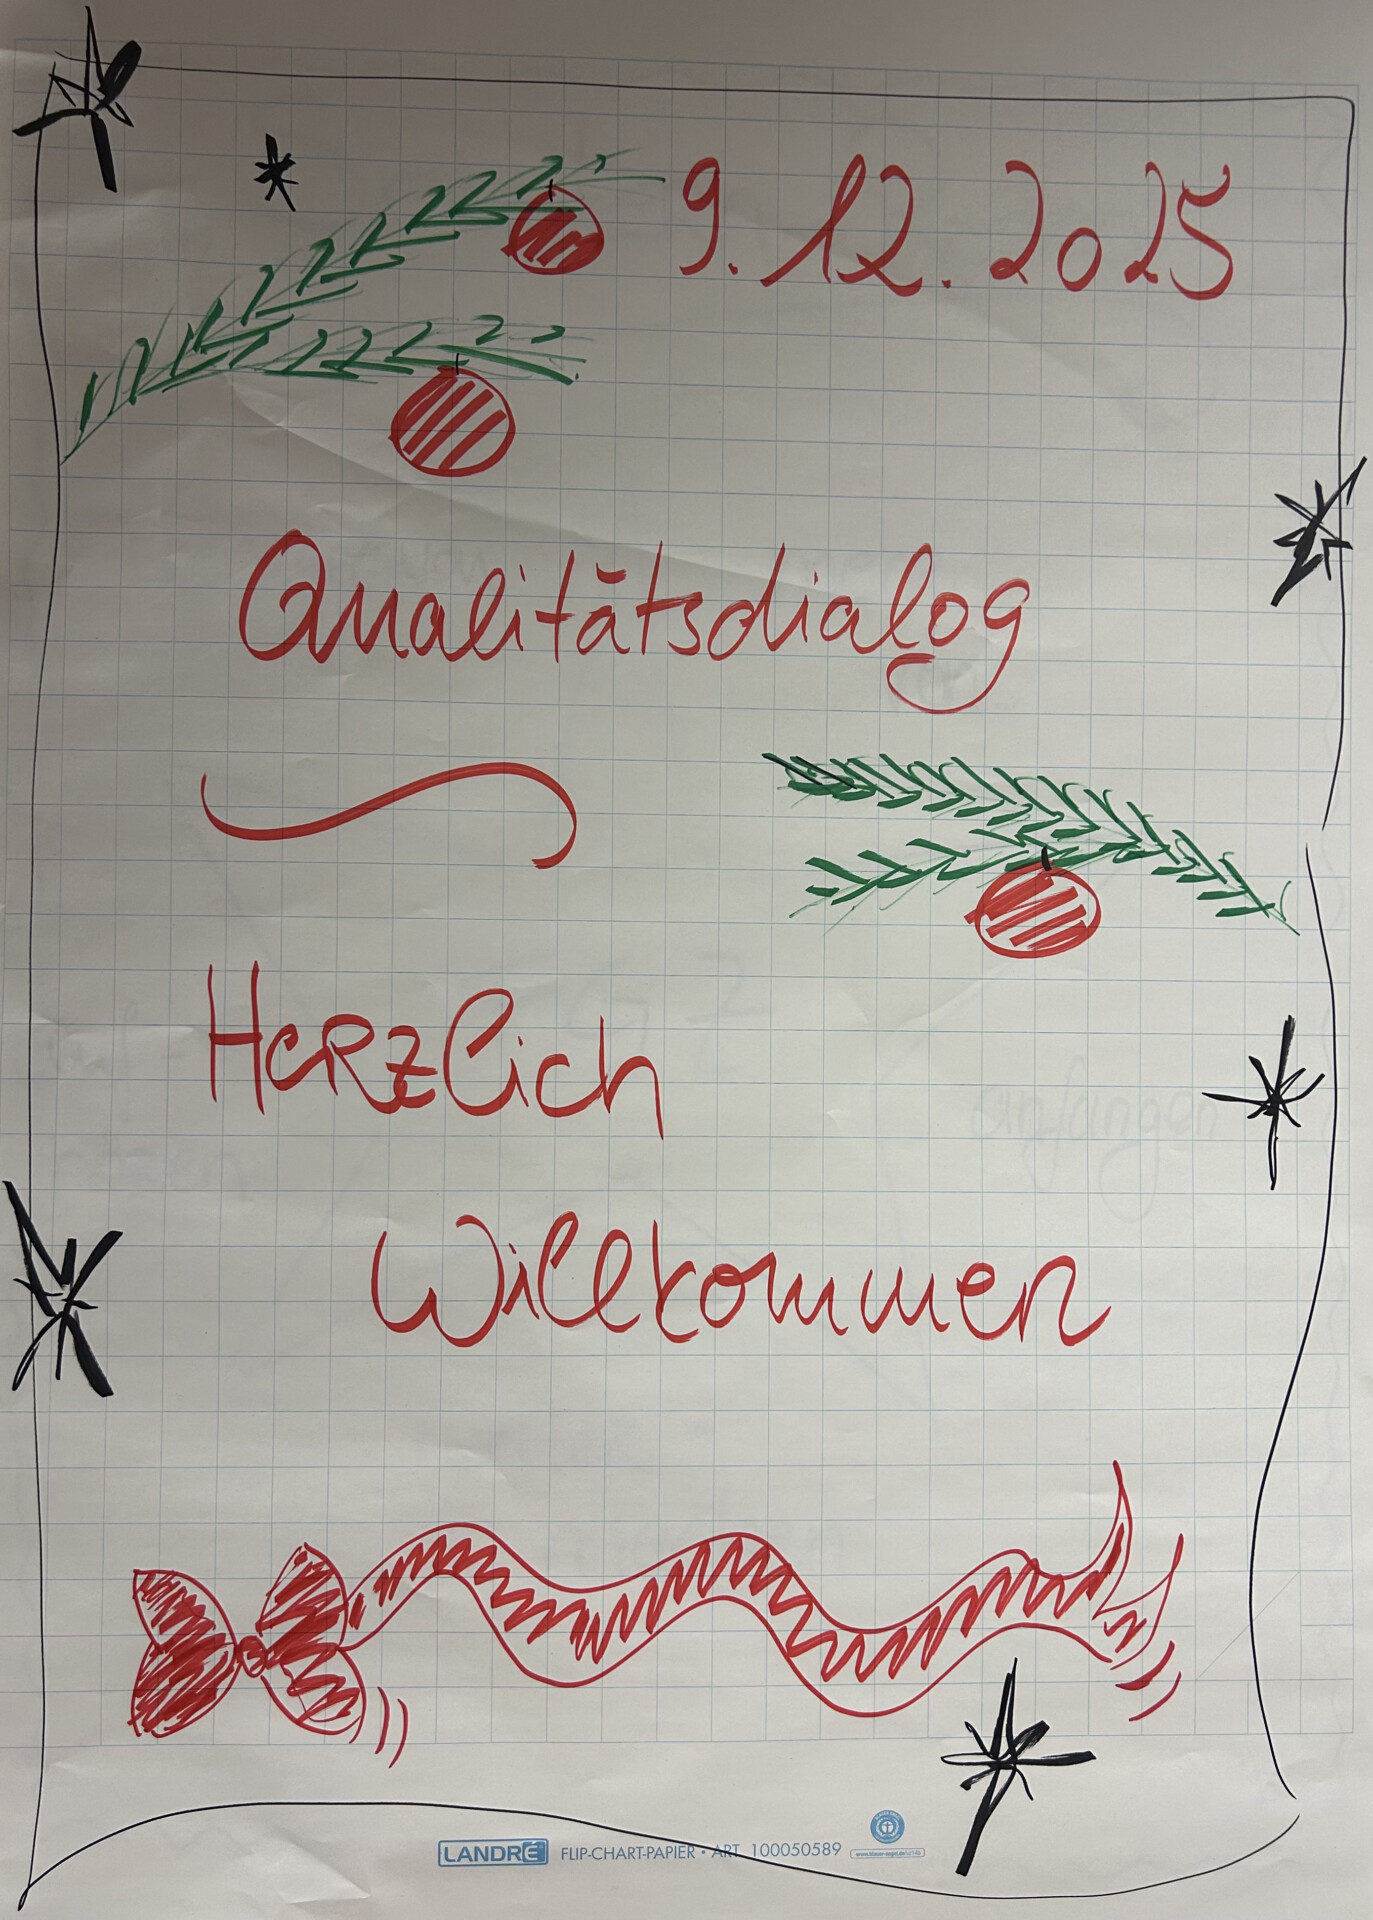 9. 12. 2025
Qualitätsdialog
Herzlich
Willkommen
LANDRÉ FLIP-CHART-PAPIER • ART. 100050589